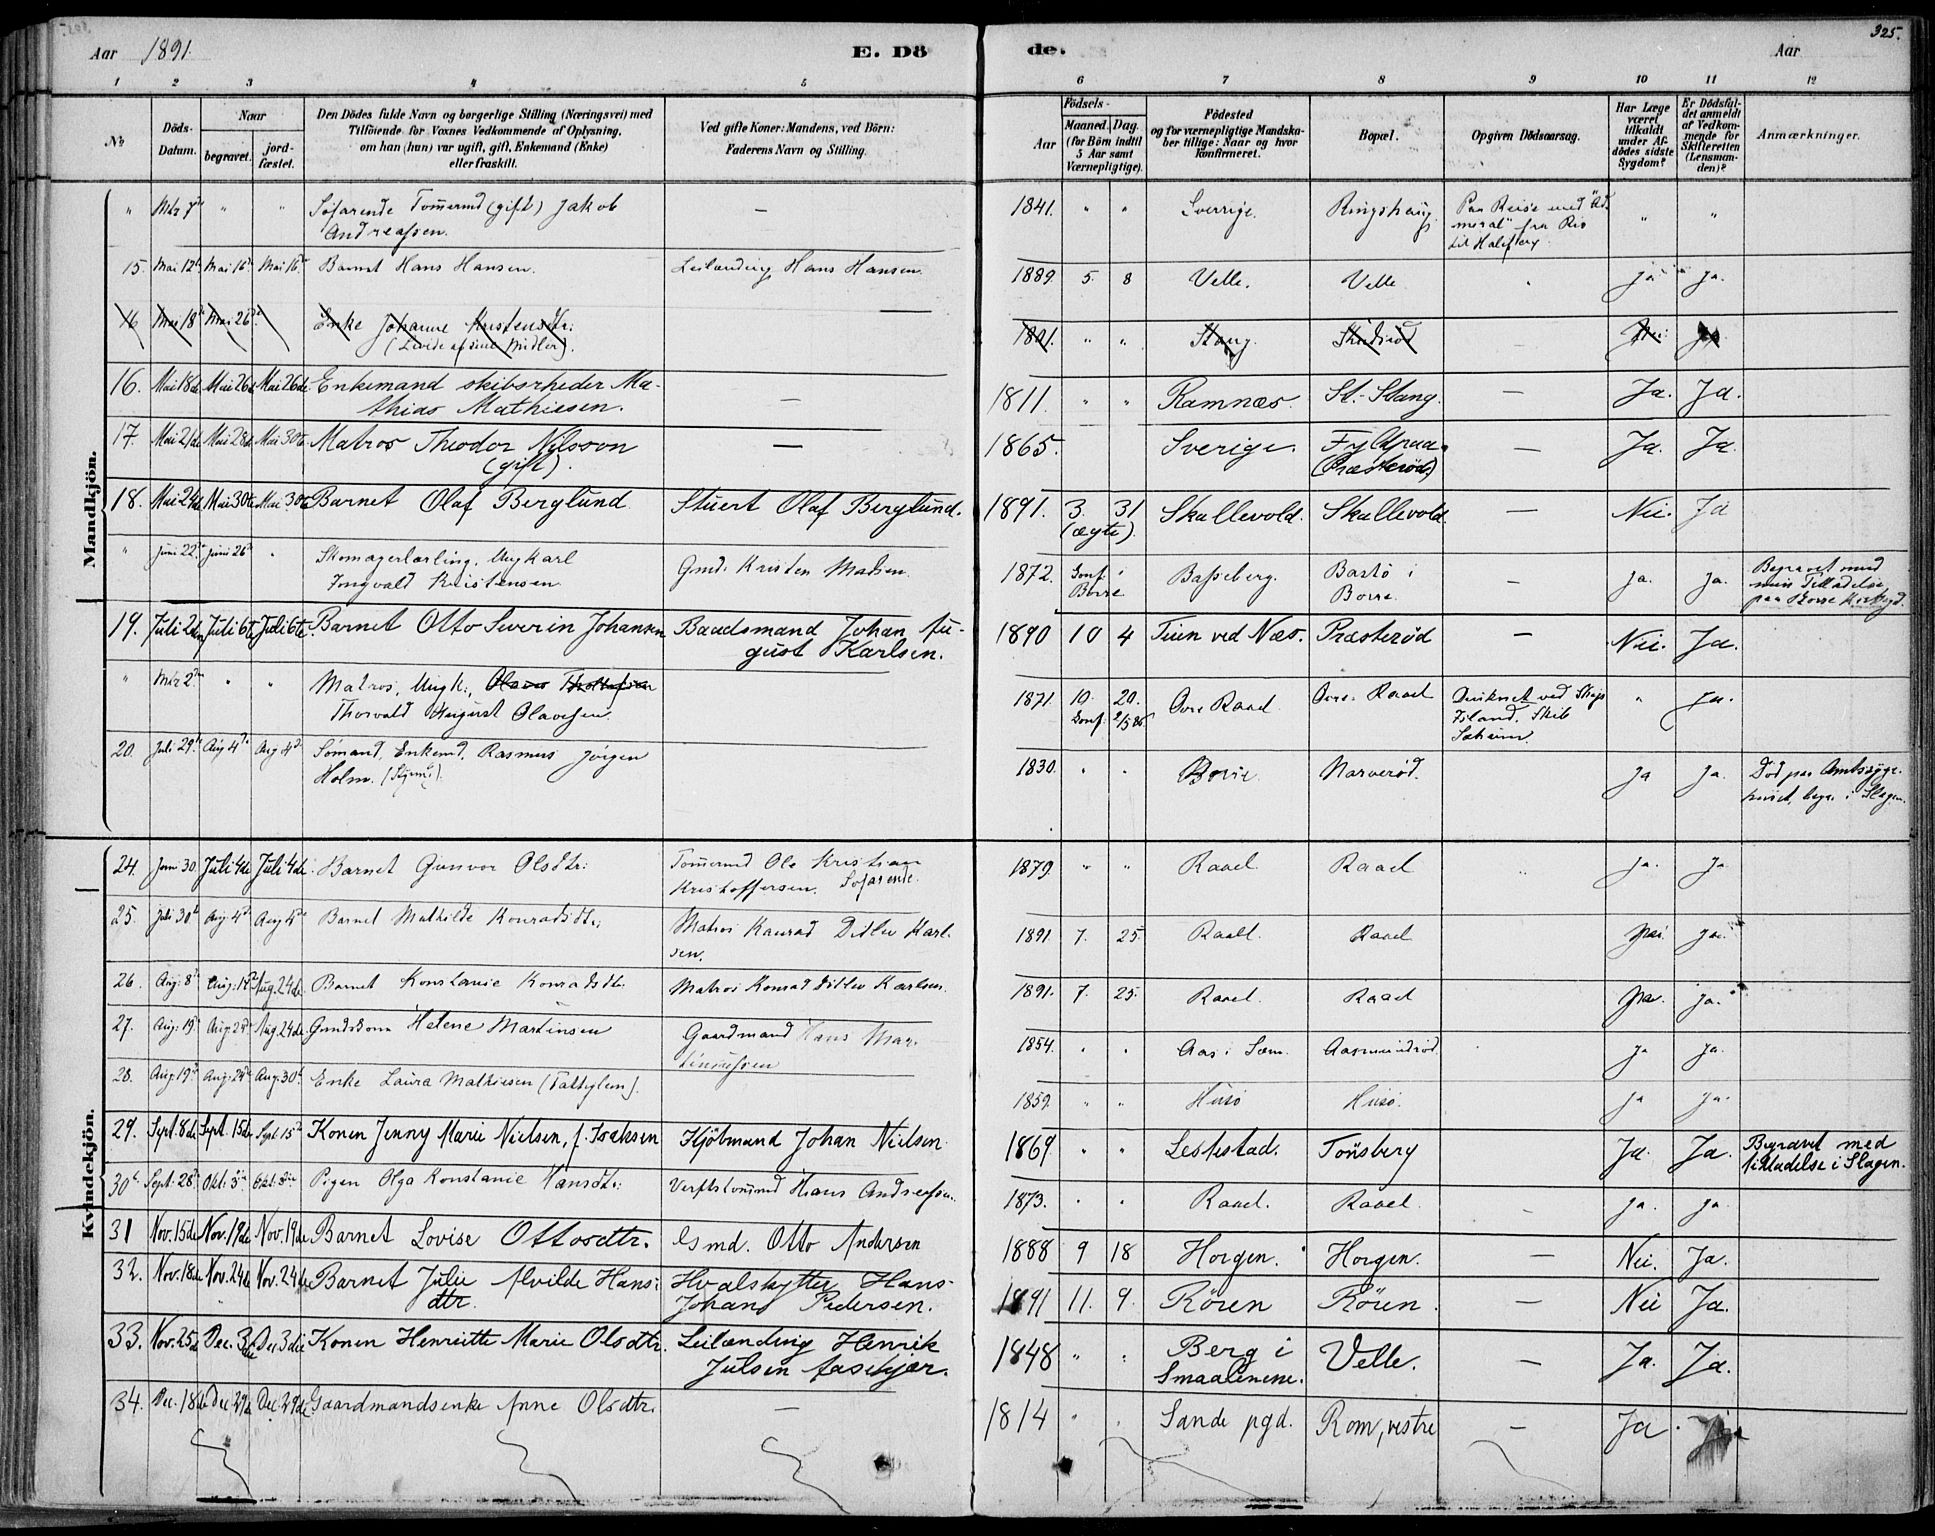 Aar 1891. E. Dö de. Aar 325.
1 2 3 4 5 6 7 8 9 10 11 12
No Döds-Datum. Naar begravet. jordfæstet.
Den Dödes fulde Navn og borgerlige Stilling (Næringsvei) med
Tilföiende for Voxnes Vedkommende af Oplysning,
om han (hun) var ugift, gift, Enkemand (Enke)
eller fraskilt.
Ved gifte Koner: Mandens, ved Börn:
Faderens Navn og Stilling.
Aar
Födsels-
Maaned. Dag.
(for Börn indtil
5 Aar samt
Værnepligtige).
Födested
og for værnepligtige Mandska-
ber tillige: Naar og hvor
konfirmeret.
Bopæl.
Opgiven Dödsaarsag.
Har Læge
været
tilkaldt
under Af-
dödes sidste
Sygdom?
Er Dödsfal-
det anmeldt
af Vedkom-
mende for
Skifteretten
(Lensman-
den)?
Anmærkninger.
Mandkjön.
" Mts 7de " " Söfarende Tömermd (gift) Jakob — 1841. " " Sverrige. Ringshaug Paa Reise med "Ad- " "
Andreassen. miral" fra Rio
til Halifax
15. Mai 12te Mai 16de Mai 16de Barnet Hans Hansen. Leilænding Hans Hansen. 1889. 5. 8 Velle. Velle ja ja.
16 Mai 18de Mai 26de Enke Johanne Kristensdtr: 1801. " " Stang. — Nei Ja
(Levede af sine Midler).
16. Mai 18de Mai 26de Mai 26de Enkemand skibsrheder Ma- — 1811. " " Ramnæs. St. Stang. — Ja. Ja.
thias Mathiesen.
17. Mai 21de Mai 28de Mai 30te Matros Theodor Nilsson — 1865. Sverige. Fyldpaa — Ja. Ja.
(gift). (Præsterød)
18. Mai 24de Mai 30te Mai 30te Barnet Olaf Berglund Stuert Olaf Berglund. 1891. 3. 31 Skallevold. Skallevold. — Nei. Ja
(ægte).
" Juni 22de Juni 26de " Skomagerlærling, Ungkarl Gmd. Kristen Madsen. 1872. Conf. i Basseberg. Bastö i — ja. ja. Begravet med
Ingvald Kristensen. Borre Borre. min Tilladelse
paa Borre Kirkegd.
19. Juli 2den Juli 6te Juli 6te Barnet Otto Severin Johansen Baadsmand Johan Au- 1890 10 4 Teien ved Næs. Præsterød — Nei. Ja.
gust Karlsen.
" Mts 2den " " Matros, Ungk., 1871. 10. 20. Övre Raael Övre Raael Druknet ved " Ja.
Thorvald August Olavessen. Conf. 2/5 86 Island. Skib
20. Juli 29de Aug 4de Aug 4de Sömand, Enkemd, Rasmus Jörgen 1830. " " Borre. Narveröd. ja ja. Död paa Amtssyge-
Holm. (Styrmd). huset, begr. i Slagen.
Kvindekjön.
24. Juni 30 Juli 4de Juli 4de Barnet Gunvor Olsdtr: Tömermd Ole Kristian 1879. " " Raael Raael " ja. ja
Kristoffersen. Söfarende.
25. Juli 30te Aug. 4de Aug 4de Barnet Mathilde Konradsdtr: Matros Konrad Ditlev Karl- 1891 7. 25. Raael. Raael nei. ja.
sen.
26. Aug: 8de Aug: 14de Aug. 24de Barnet Konstanse Konradsdtr. Matros Konrad Ditlev Karlsen. 1891. 7. 25. Raael. Raael ja.
27. Aug: 19de Aug 24de Aug. 24de Gmdskone Helene Martinsen Gaardmand Hans Mar- 1854. " " Aas i Sem. Aasmundröd ja ja.
tinussen
28. Aug. 19de Aug: 24de Aug. 30te Enke Laura Mathiesen (Fattiglem). 1859. " " Husö Husö. ja ja.
29. Sept. 8de Sept. 15de Sept 15de Konen Jenny Marie Nielsen, f. Isaksen Kjöbmand Johan Nielsen 1869 " " Lestestad. Tönsberg Ja. Ja. Begravet med
tilladelse i Slagen.
30. Sept. 28de Okt. 3die Okt. 3die Pigen Olga Konstanse Hansdtr: Verftstömmd Hans Andreassen. 1873. " " Raael. Raael. ja. ja.
31 Nov. 15de Nov. 19de Nov. 19de Barnet Lovise Ottosdtr. Gmd. Otto Andersen 1888 9 18 Horgen. Horgen. — Nei. Ja.
32. Nov. 18de Nov. 24de Nov. 24de Barnet Julie Alvilde Hans- Hvalskytter Hans 1891 11. 9. Rören Rören. — Nei Ja.
dtr. Johan Pedersen.
33. Nov. 25de Dec. 3die Dec. 3die Konen Henriette Marie Olsdtr. Leilænding Henrik 1848 " " Berg i Velle. — Ja. Ja.
Julsen Aasekjær. Smaalenene.
34. Dec. 18de Dec. 29de Dec. 29de Gaardmandsenke Anne Olsdtr. — 1814 " " Sande pgd. Rom, vestre — Ja. Ja